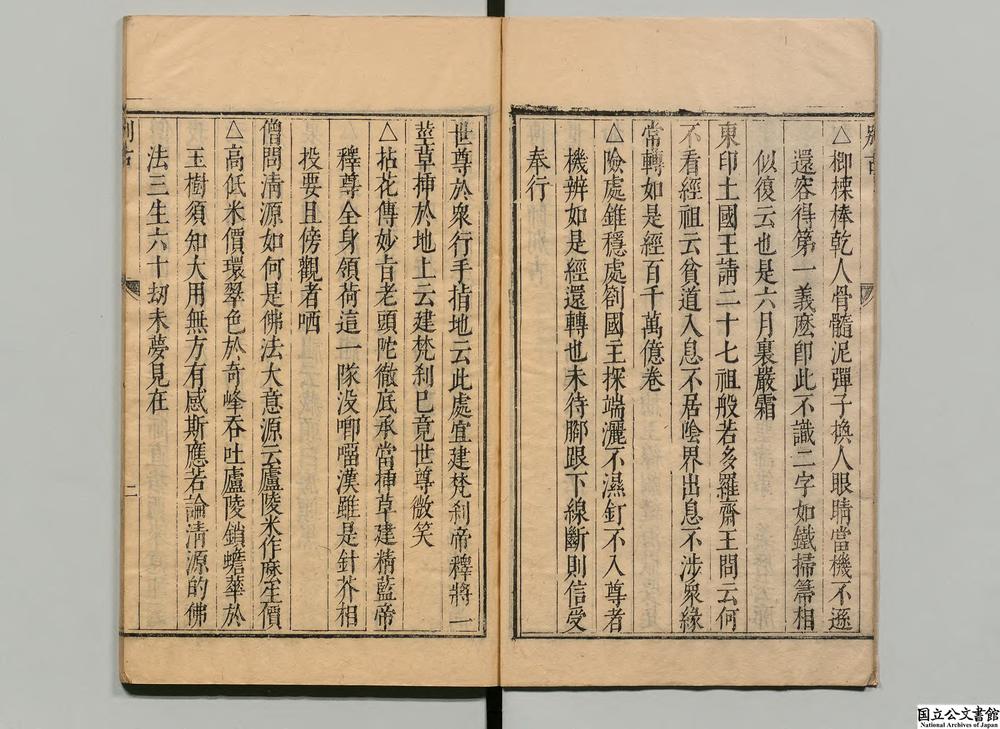 △楖樏棒乾人骨髓泥彈子換人眼睛當機不遜
還容得第一義麽卽此不識二字如鐵掃箒相
似復云也是六月裏嚴霜
東印土國王請二十七祖般若多羅齋王問云何
不看經祖云貧道入息不居陰界出息不涉衆緣
常轉如是經百千萬億卷
△險處錐穩處劄國王探端灑不濕釘不入尊者
機辨如是經還轉也未待腳跟下線斷則信受
奉行
世尊於衆行手指地云此處宜建梵刹帝釋將一
莖草揷於地上云建梵刹已竟世尊微笑
△拈花傳妙旨老頭陀徹底承當揷草建精藍帝
釋尊全身領荷這一隊没唧𠺕漢雖是針芥相
投要且傍觀者哂
僧問淸源如何是佛法大意源云廬陵米作麽生價
△高低米價環翠色於奇峰吞吐廬陵鎖蟾華於
玉樹須知大用無方有感斯應若論淸源的佛
法三生六十劫未夢見在
二
国立公文書館
National Archives of Japan